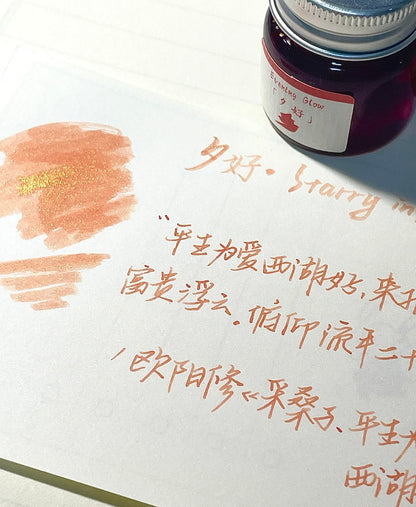 Evening Glow
「夕好」
夕好。Starry in
“平生为爱西湖好,来
富贵浮云。俯仰流年二十
/欧阳修《采桑子、平生为
西湖